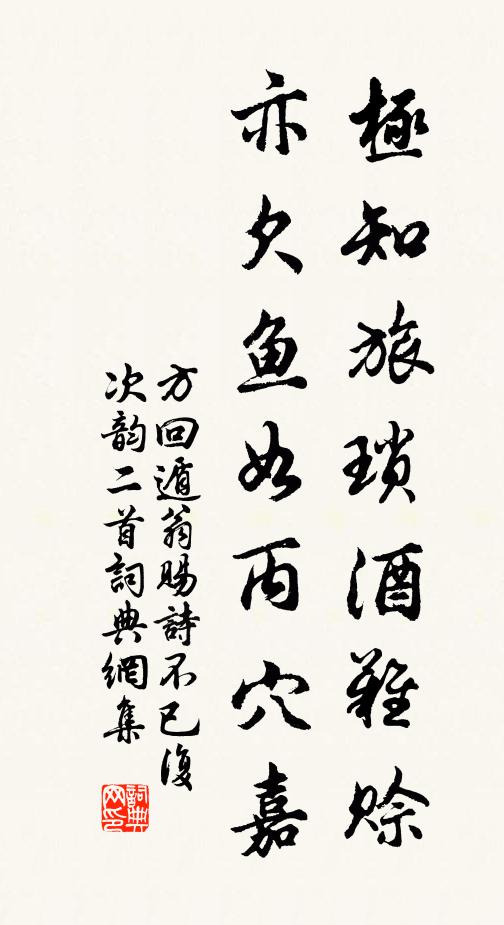 極知旅瑣酒難賒
亦欠魚如丙穴嘉
方回遁翁賜詩不已復
次韵二首詞典網集
詞典
网印